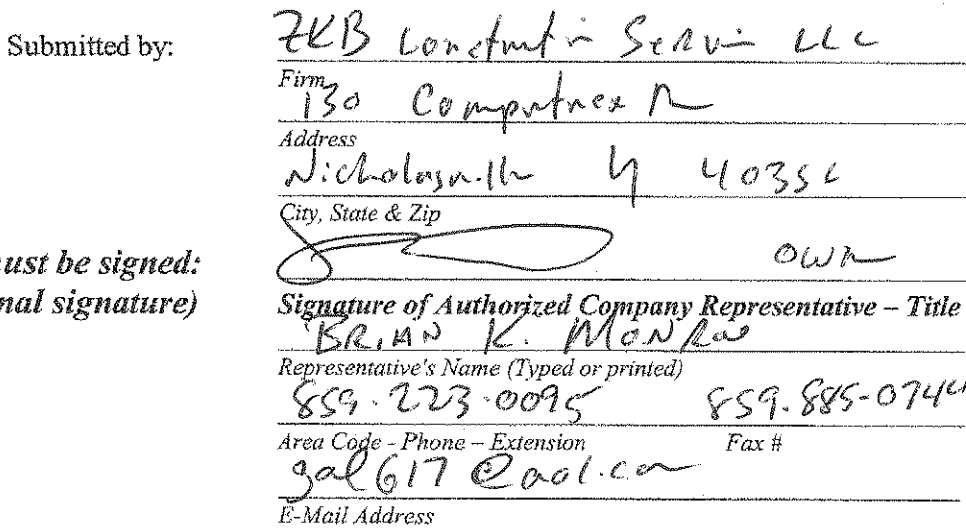 Submitted by: ZKB Constructin Servin LLC
Firm
130 Computrex
Address
Nicholasville 4035
City, State & Zip
ust be signed: own
nal signature) Signature of Authorized Company Representative – Title
BRIAN K. MONROE
Representative's Name (Typed or printed)
859-223-0095 859-885-074
Area Code - Phone – Extension Fax #
gal617@aol.com
E-Mail Address